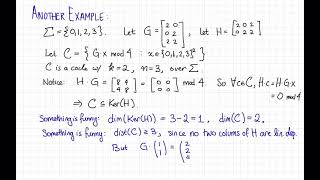 ANOTHER EXAMPLE:
Σ = {0,1,2,3}. Let G = [2 0; 0 2; 2 2], let H = [2 0 2; 0 2 2]
Let C = { G·x mod 4 : x ∈ {0,1,2,3}² }
C is a code w/ k=2, n=3, over Σ
Notice: H·G = [8 4; 4 8] = [0 0; 0 0] mod 4. So ∀c∈C, H·c = H·G·x = 0 mod 4
⇒ C ⊆ Ker(H).
Something is funny: dim(Ker(H)) = 3-2 = 1, dim(C) = 2.
Something is funny: dist(C) ≥ 3, since no two colums of H are lin. dep.
But G·(1; 1) = (2; 2;